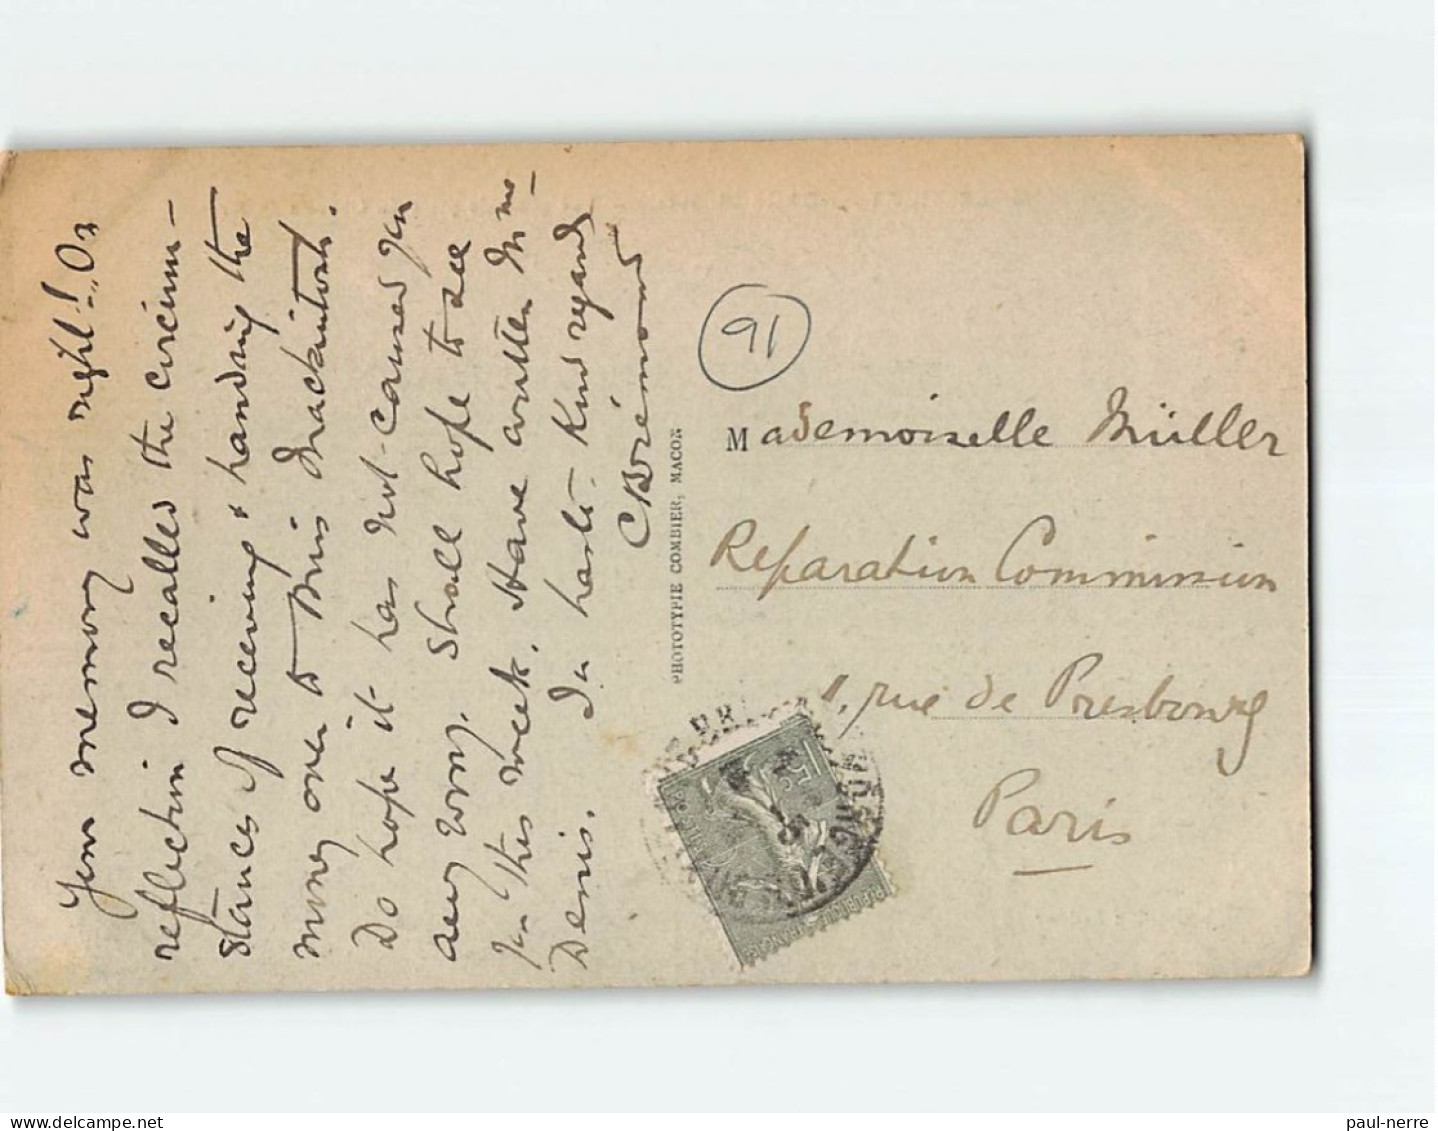 Your memory was right! On
reflection I recalled the circum-
stances of receiving & handing the
money over to Miss Mackintosh.
Do hope it has not caused you
any worry. Shall hope to see
you this week. Have written Mme
Denis. In haste. Kind regards
CBrémond
PHOTOTYPIE COMBIER, MACON
91
Mademoiselle Müller
Reparation Commission
1, rue de Presbourg
Paris
15
paul-nerre